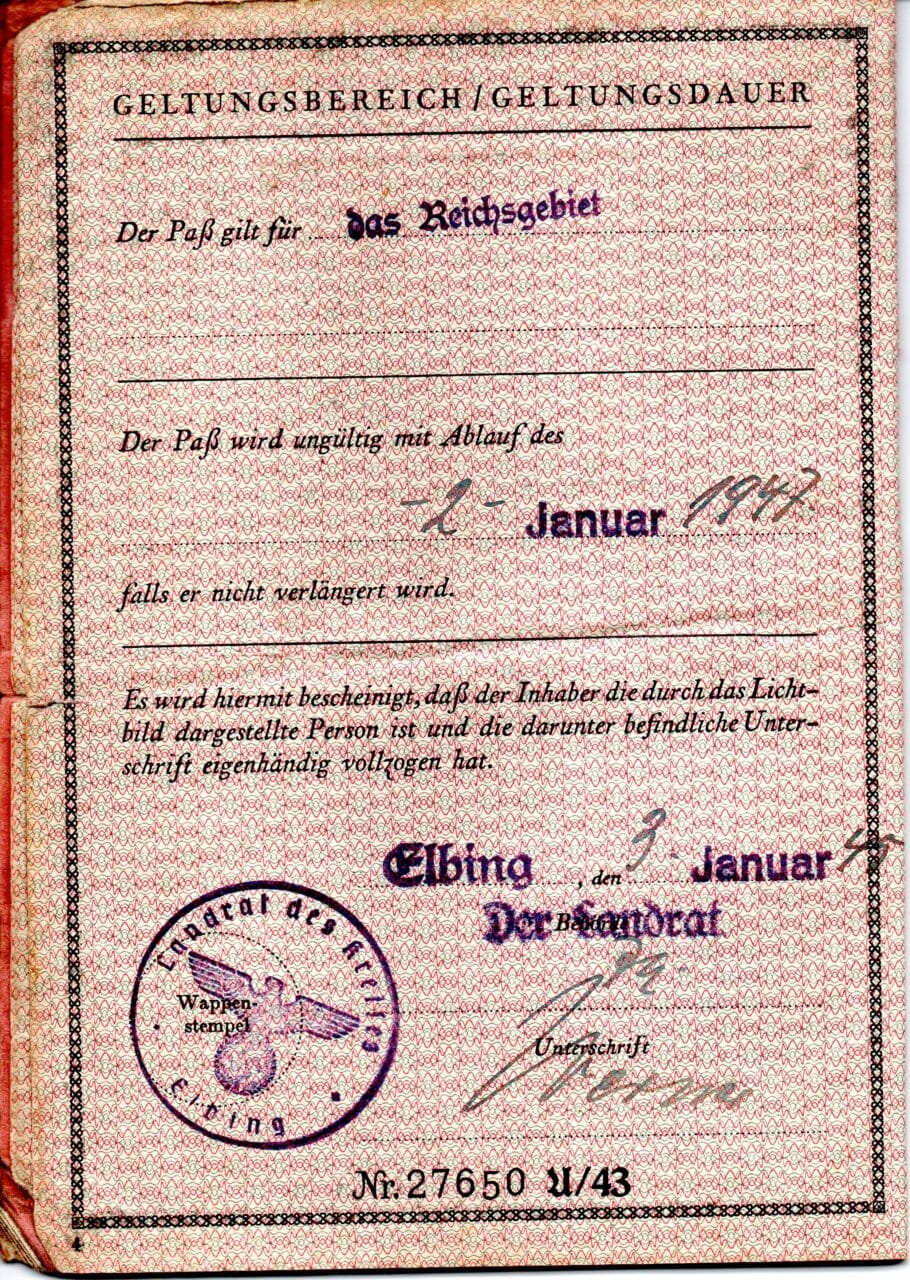 GELTUNGSBEREICH/GELTUNGSDAUER
Der Paß gilt für das Reichsgebiet
Der Paß wird ungültig mit Ablauf des
-2- Januar 1947.
falls er nicht verlängert wird.
Es wird hiermit bescheinigt, daß der Inhaber die durch das Licht-
bild dargestellte Person ist und die darunter befindliche Unter-
schrift eigenhändig vollzogen hat.
Elbing, den 3. Januar 45
Der Landrat
Landrat des Kreises
Wappen-
stempel
Elbing
Unterschrift
Nr. 27650 U/43
4